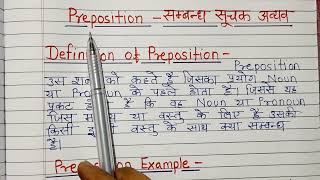 Preposition - सम्बन्ध सूचक अव्यय
Definition of Preposition -
Preposition
उस शब्द को कहते हैं जिसका प्रयोग Noun
या Pronoun के पहले होता है। जिससे यह
प्रकट होता है कि वह Noun या Pronoun
जिस या वस्तु के लिए है उसका
किसी वस्तु के साथ क्या सम्बन्ध
है।
Preposition Example -